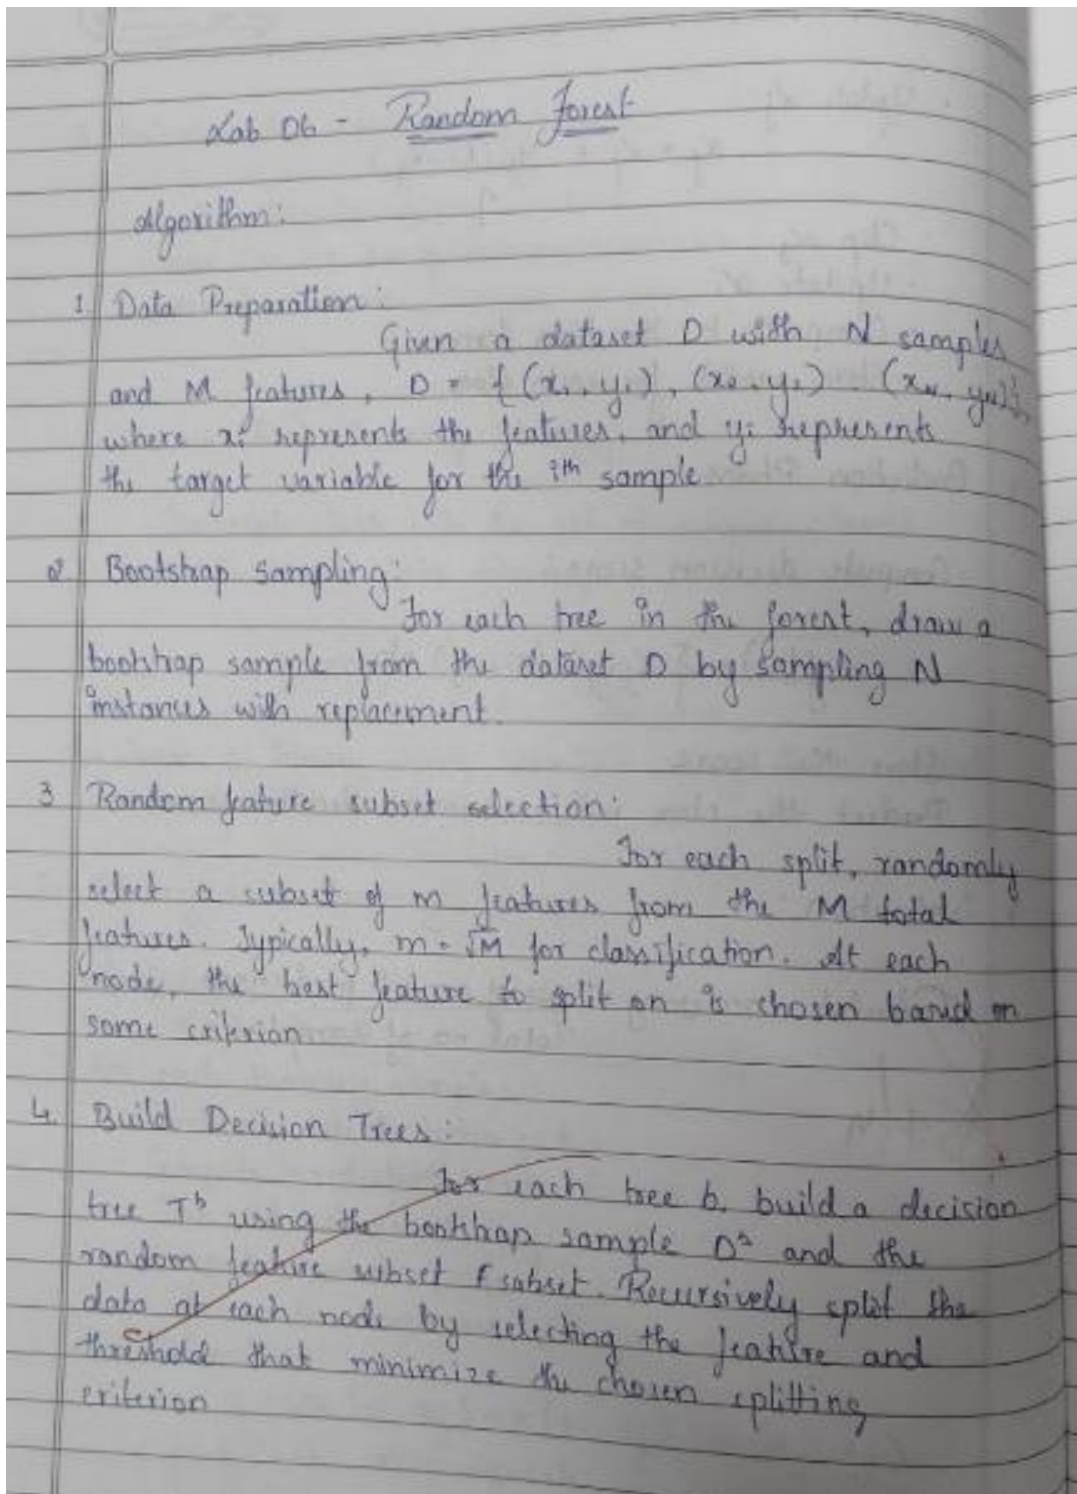 Lab 06 - Random Forest
Algorithm:
1 Data Preparation:
Given a dataset D with N samples
and M features, D = {(x₁, y₁), (x₂, y₂) (x_N, y_N)},
where xi represents the features, and yi represents
the target variable for the ith sample
2 Bootstrap Sampling:
For each tree in the forest, draw a
bootstrap sample from the dataset D by sampling N
instances with replacement.
3 Random feature subset selection:
For each split, randomly
select a subset of m features from the M total
features. Typically, m = √M for classification. At each
node, the best feature to split on is chosen based on
some criterion
4. Build Decision Trees:
For each tree b, build a decision
tree Tᵇ using the bootstrap sample and the
random feature subset F subset. Recursively split the
data at each node by selecting the feature and
threshold that minimize the chosen splitting
criterion